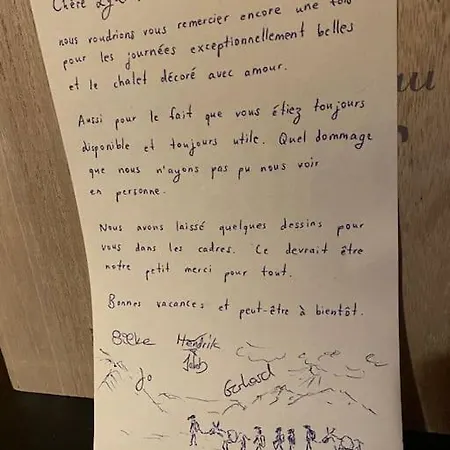 Chère
nous voudrions vous remercier encore une fois
pour les journées exceptionnellement belles
et le chalet décoré avec amour.
Aussi pour le fait que vous étiez toujours
disponible et toujours utile. Quel dommage
que nous n'ayons pas pu nous voir
en personne.
Nous avons laissé quelques dessins pour
vous dans les cadres. Ce devrait être
notre petit merci pour tout.
Bonnes vacances et peut-être à bientôt.
Hendrik
Jo
Gerhard